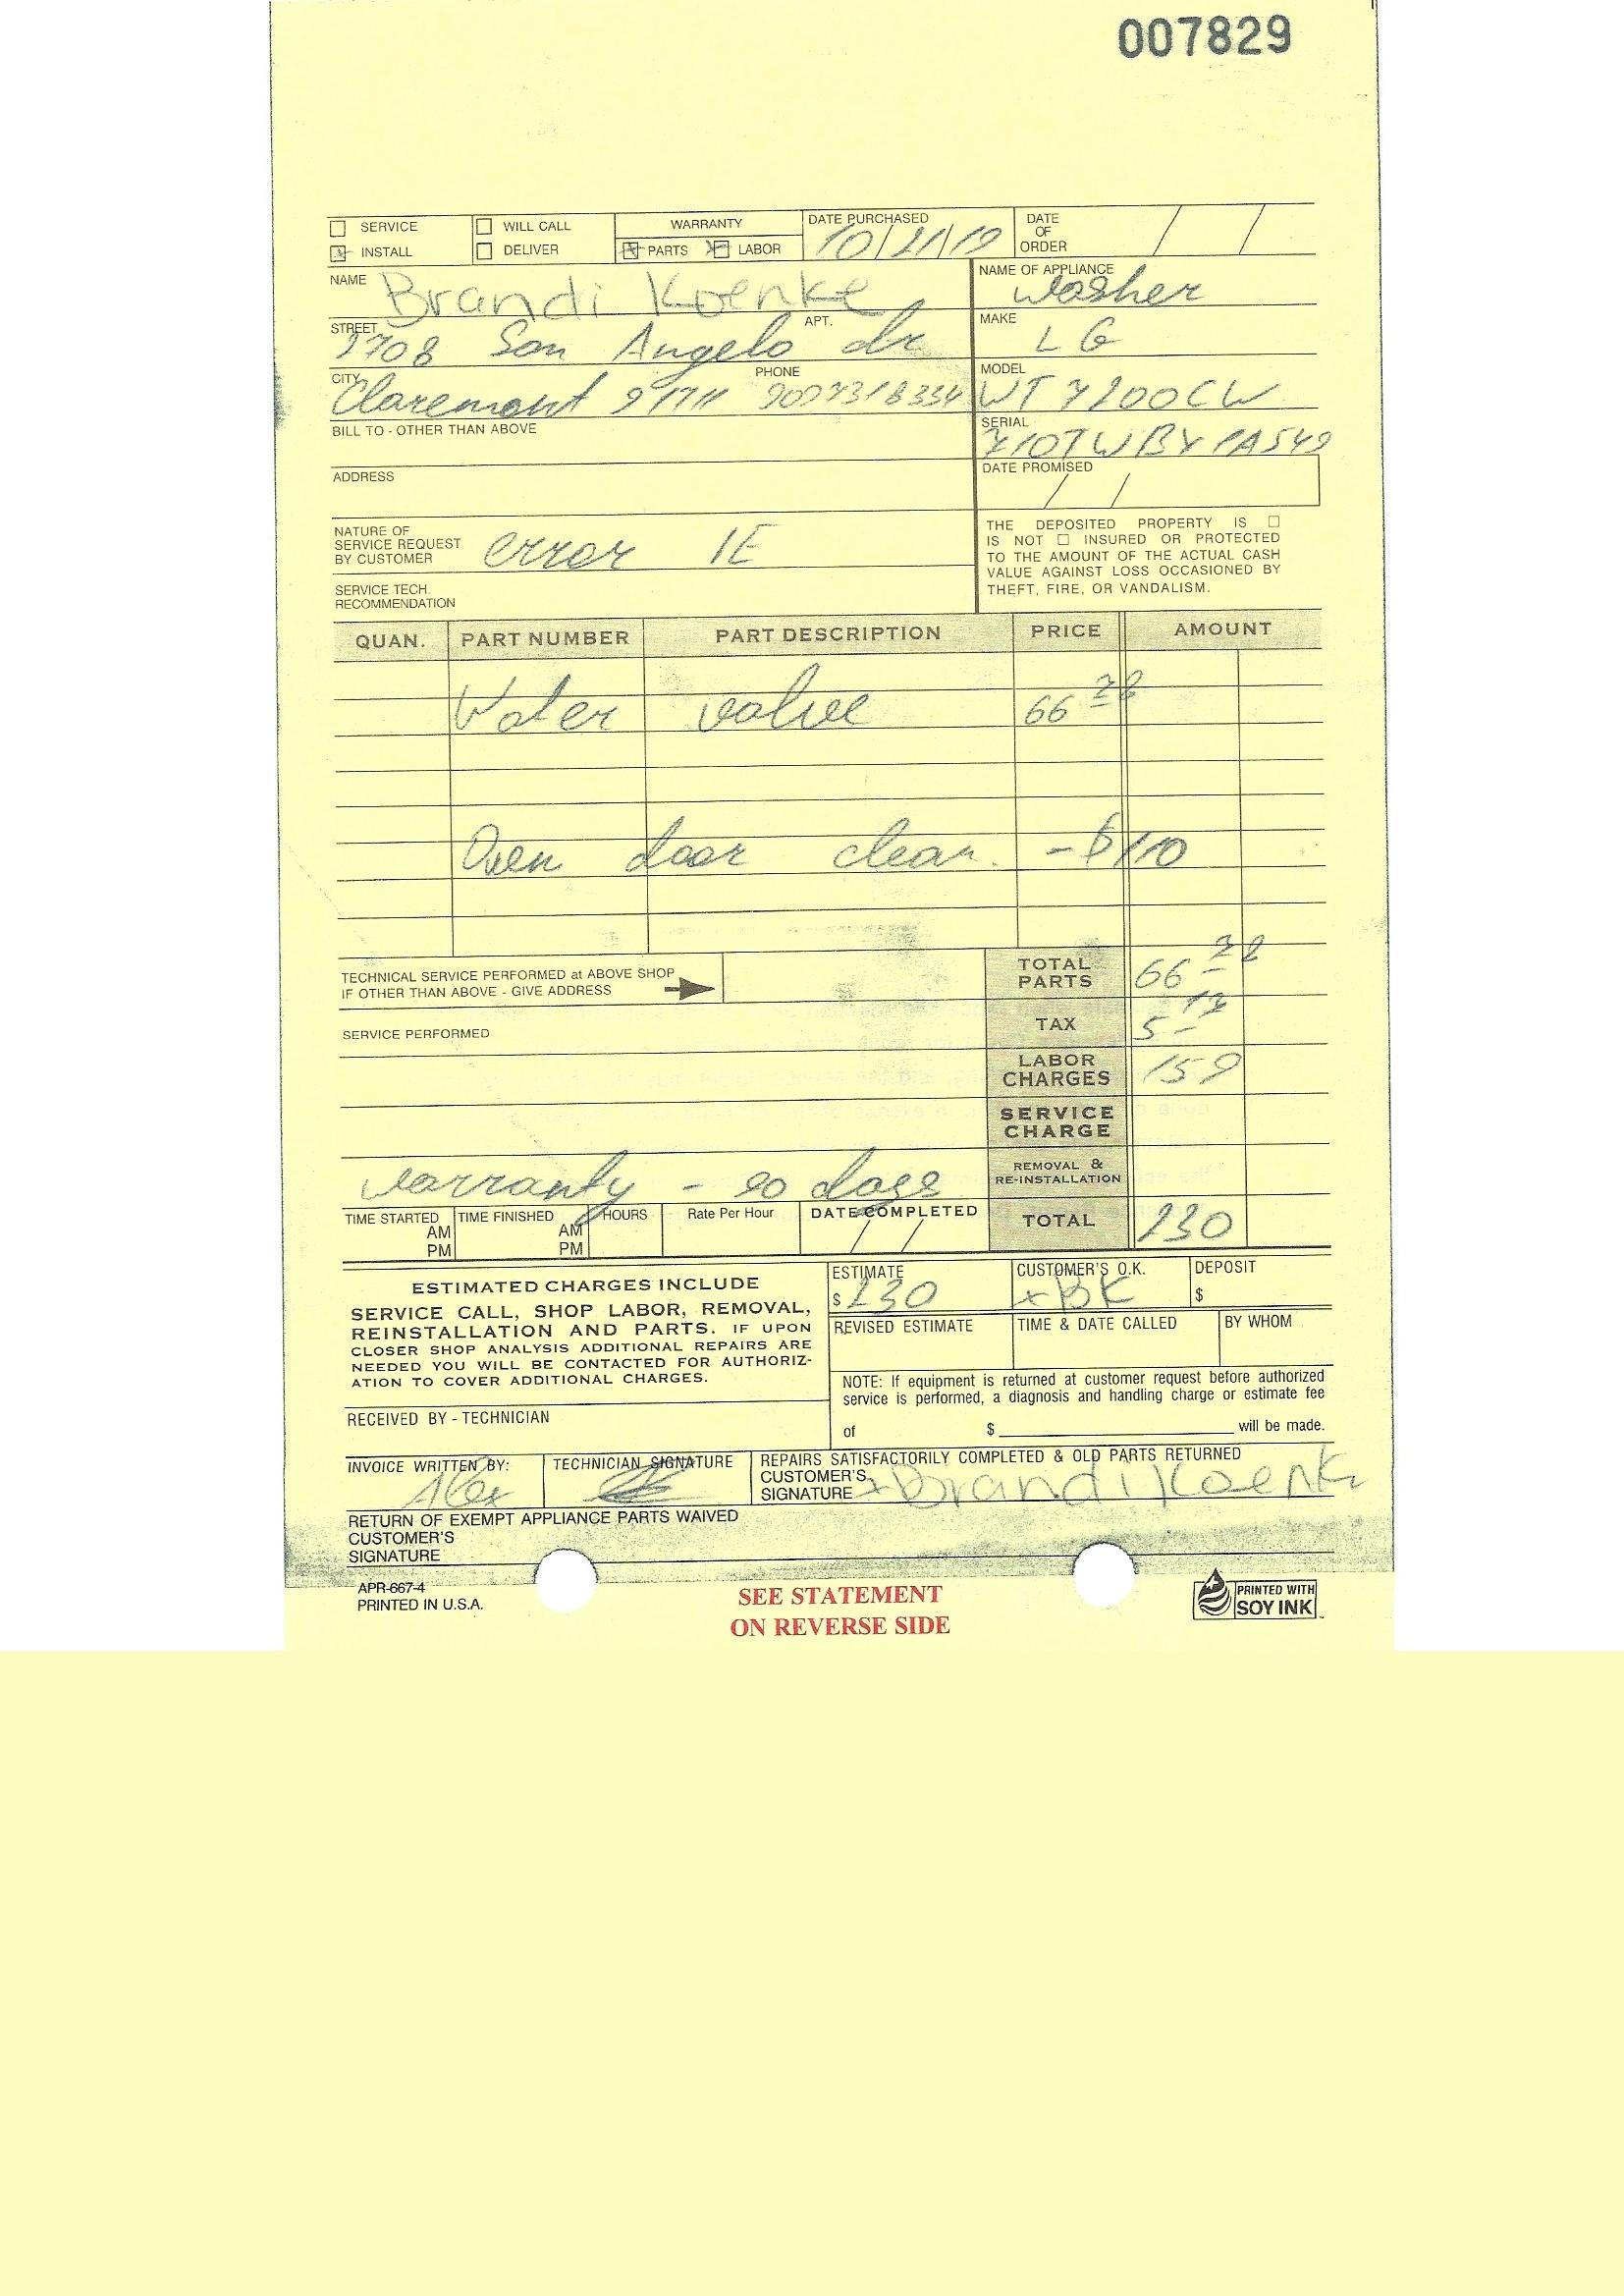 007829
SERVICE WILL CALL WARRANTY DATE PURCHASED DATE OF ORDER / /
INSTALL DELIVER PARTS LABOR 10/21/19
NAME Brandi Koenke NAME OF APPLIANCE Washer
STREET 2708 San Angelo dr APT. MAKE LG
CITY Claremont 91711 PHONE 9097318334 MODEL WT7200CW
BILL TO - OTHER THAN ABOVE SERIAL
ADDRESS DATE PROMISED / /
NATURE OF
SERVICE REQUEST
BY CUSTOMER error IE
SERVICE TECH.
RECOMMENDATION
THE DEPOSITED PROPERTY IS
IS NOT INSURED OR PROTECTED
TO THE AMOUNT OF THE ACTUAL CASH
VALUE AGAINST LOSS OCCASIONED BY
THEFT, FIRE, OR VANDALISM.
QUAN. PART NUMBER PART DESCRIPTION PRICE AMOUNT
Water valve 66
Oven door clean. - $110
TECHNICAL SERVICE PERFORMED at ABOVE SHOP
IF OTHER THAN ABOVE - GIVE ADDRESS
TOTAL PARTS 66
SERVICE PERFORMED
TAX 5
LABOR CHARGES 159
SERVICE CHARGE
REMOVAL & RE-INSTALLATION
warranty - 90 days
TIME STARTED AM PM TIME FINISHED AM PM HOURS Rate Per Hour DATE COMPLETED / / TOTAL 230
ESTIMATED CHARGES INCLUDE
SERVICE CALL, SHOP LABOR, REMOVAL,
REINSTALLATION AND PARTS. IF UPON
CLOSER SHOP ANALYSIS ADDITIONAL REPAIRS ARE
NEEDED YOU WILL BE CONTACTED FOR AUTHORIZ-
ATION TO COVER ADDITIONAL CHARGES.
ESTIMATE $230 CUSTOMER'S O.K. x BK DEPOSIT $
REVISED ESTIMATE TIME & DATE CALLED BY WHOM
NOTE: If equipment is returned at customer request before authorized
service is performed, a diagnosis and handling charge or estimate fee
of $ will be made.
RECEIVED BY - TECHNICIAN
INVOICE WRITTEN BY: Alex TECHNICIAN SIGNATURE REPAIRS SATISFACTORILY COMPLETED & OLD PARTS RETURNED
CUSTOMER'S
SIGNATURE x Brandi Koenk
RETURN OF EXEMPT APPLIANCE PARTS WAIVED
CUSTOMER'S
SIGNATURE
APR-667-4
PRINTED IN U.S.A.
SEE STATEMENT
ON REVERSE SIDE
PRINTED WITH
SOY INK